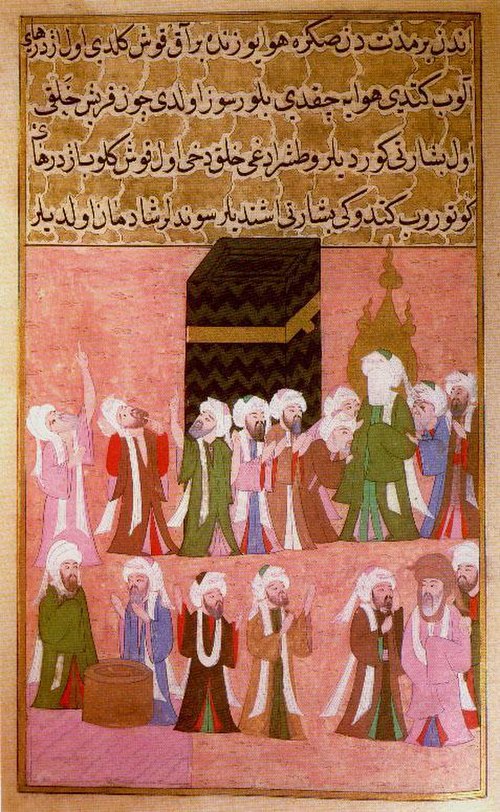 اندن بر مدت دن صكره هوا يوزندن بر آق قوش كلدى اول اژدرهاى
آلوب كتدى هوايه چقدى بلورسوز اولدى چون قريش خلقى
اول بشارتى كورديلر و طشرادغى خلق دخى اول قوش كلوب اژدرهاى
كوتوروب كتدوكى بشارتى اشتديلر سوندلر شادمان اولديلر